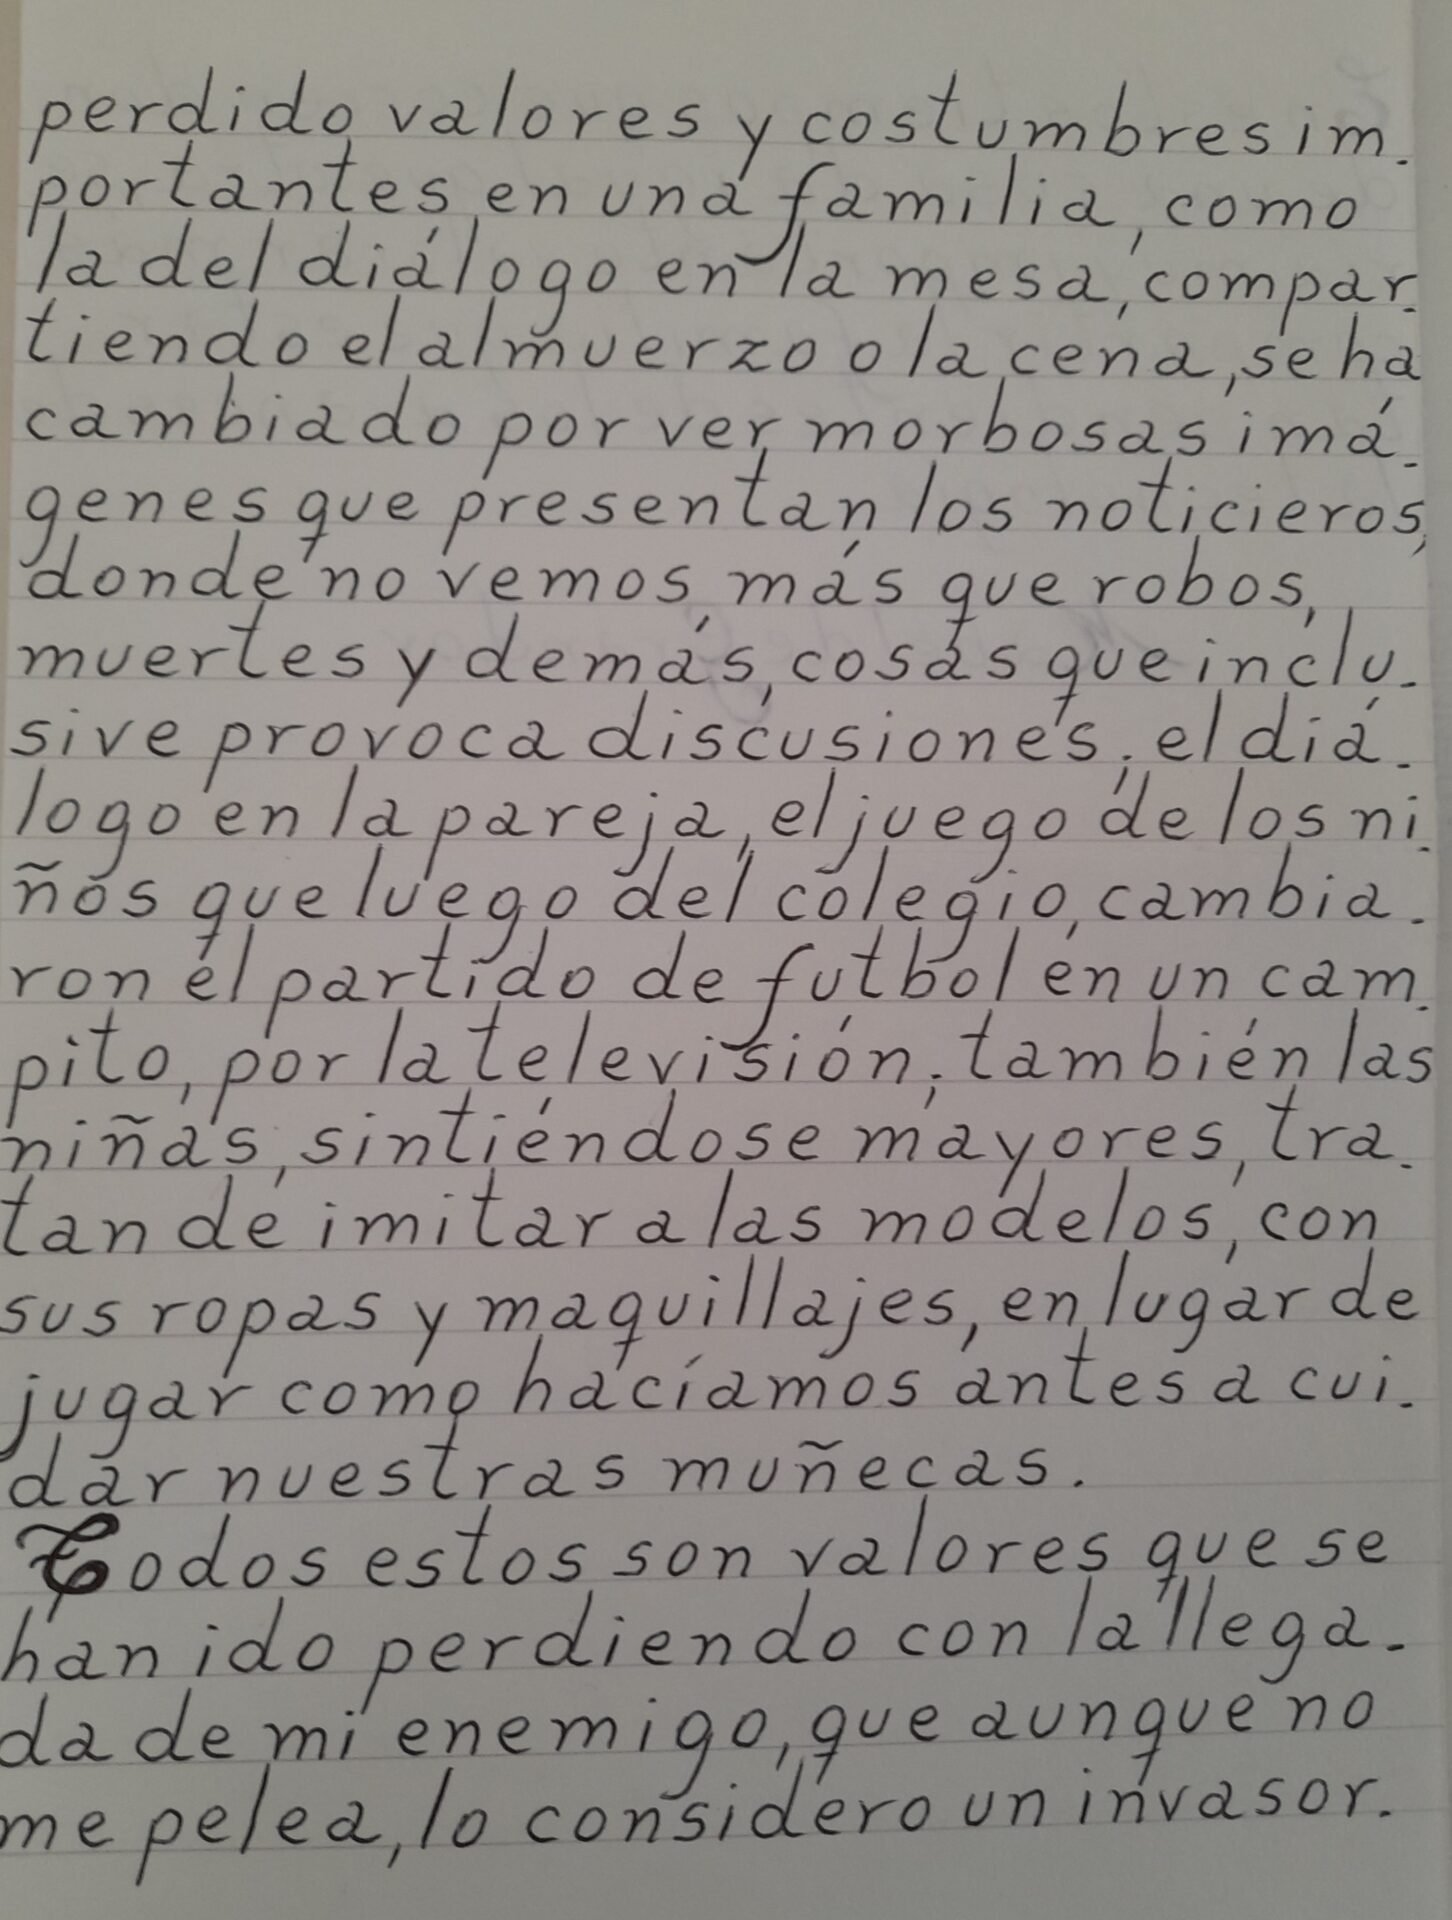 perdido valores y costumbres im.
portantes en una familia, como
la del diálogo en la mesa, compar.
tiendo el almuerzo o la cena, se ha
cambiado por ver morbosas imá.
genes que presentan los noticieros,
donde no vemos más que robos,
muertes y demás, cosas que inclu.
sive provoca discusiones; el diá.
logo en la pareja, el juego de los ni.
ños que luego del colegio, cambia.
ron el partido de futbol en un cam.
pito, por la televisión; también las
niñas, sintiéndose mayores, tra.
tan de imitar a las modelos, con
sus ropas y maquillajes, en lugar de
jugar como hacíamos antes a cui.
dar nuestras muñecas.
Todos estos son valores que se
han ido perdiendo con la llega.
da de mi enemigo, que aunque no
me pelea, lo considero un invasor.